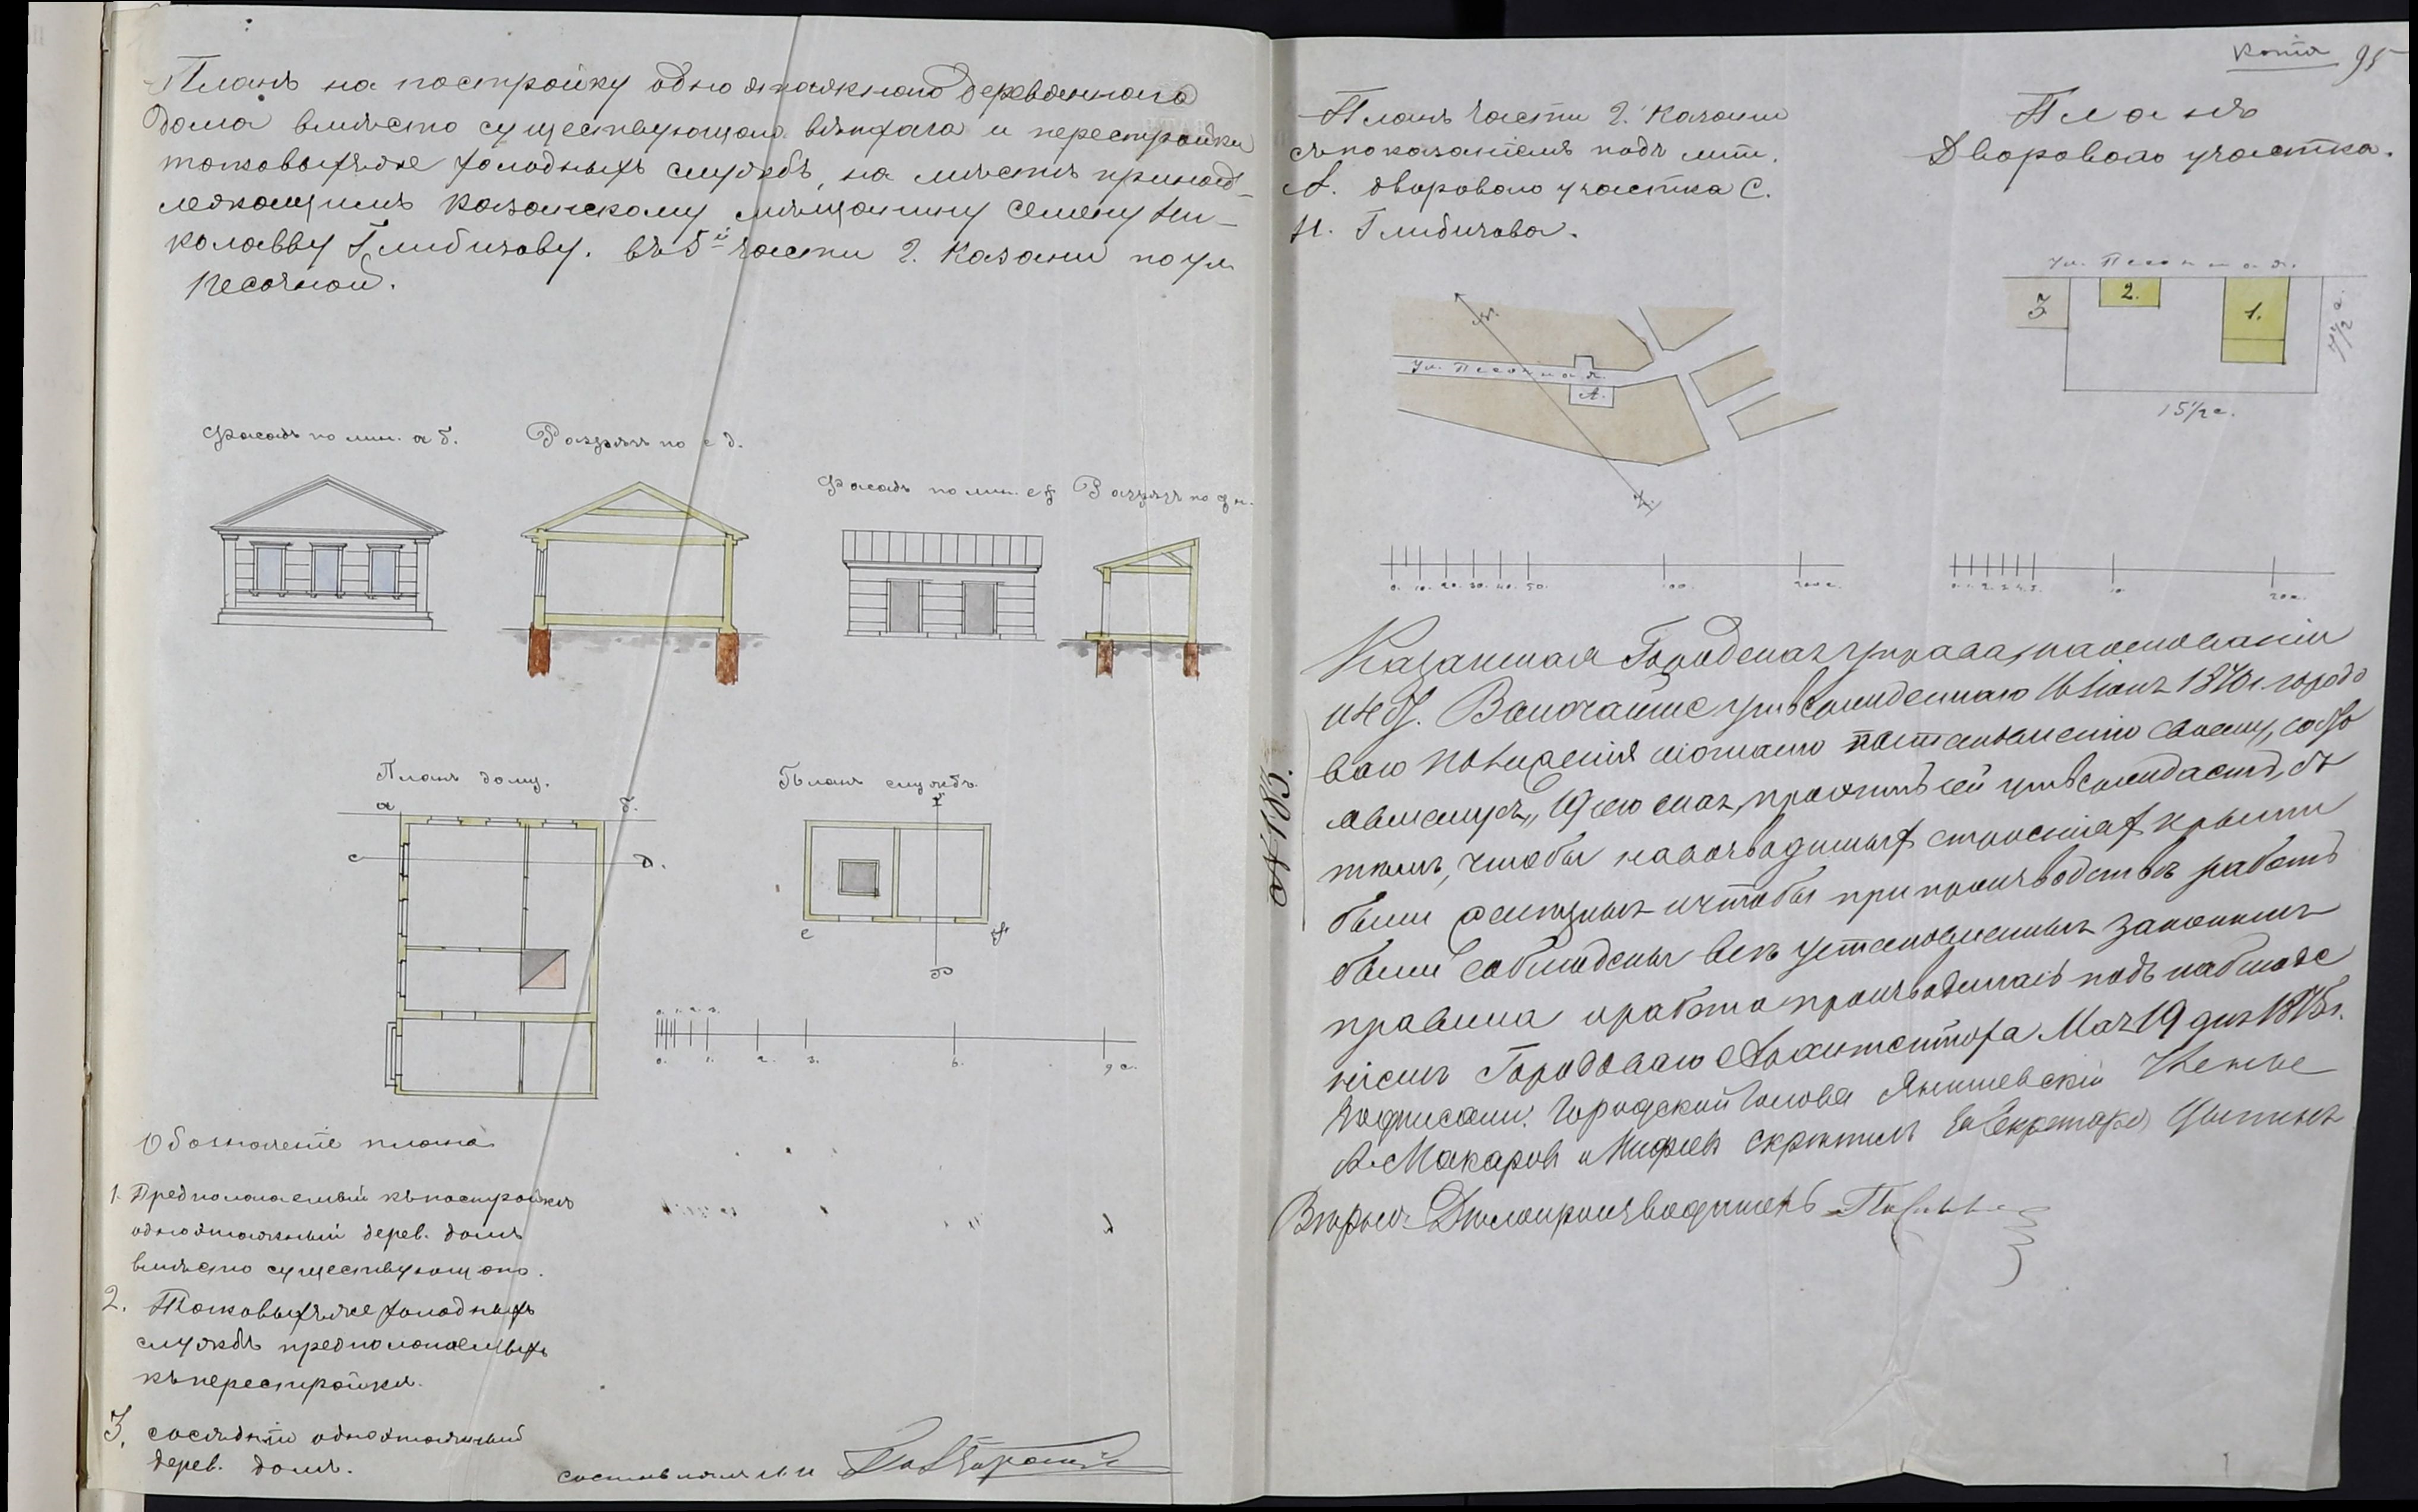 Планъ на постройку одноэтажнаго деревяннаго
дома вмѣсто существующаго ветхаго и перестройки
таковыхъ же холодныхъ службъ, на мѣстѣ принад-
лежащимъ Казанскому мѣщанину Семену Ни-
колаеву Глибичову. въ 5й части г. Казани по ул.
Песочной.
Фасадъ по лин. а б.
Разрѣзъ по с д.
Фасадъ по лин. е f
Разрѣзъ по g н.
Планъ дому.
а б.
с д.
Планъ службъ.
е f
g
0. 1. 2. 3.
0. 1. 2. 3. 6. 9 с.
Обозначенiе плана
1. Предполагаемый къ постройкѣ
одноэтажный дерев. домъ
вмѣсто существующаго.
2. Таковыхъ же холодныхъ
службъ предполагаемыхъ
къ перестройкѣ.
3. сосѣднiй одноэтажный
дерев. домъ.
составлялъ
Копiя 95
Планъ части г. Казани
съ показанiемъ подъ лит.
А. двороваго участка С.
Н. Глибичова.
Ул. Песочная.
А.
0. 10. 20. 30. 40. 50. 100. 200 с.
Планъ
Двороваго участка.
Ул. Песочная.
3 2. 1.
7 1/2 с.
15 1/2 с.
0. 1. 2. 3. 4. 5. 10. 20 с.
№ 185.
Казанская Городская управа, на основанiи
Высочайше утвержденнаго 16 Iюня 1870 г. городо
ваго положенiя согласно постановленiю своему, состо
явшемуся 19 сего мая, проэктъ сей утверждаетъ, съ
тѣмъ, чтобы на возводимыхъ строенiяхъ крыши
были и чтобы при производствѣ работъ
были соблюдены всѣ установленныя закономъ
правила и работа производилась подъ наблюде
нiемъ Городоваго Архитектора Мая 19 дня 1875 г.
Подписали: Городской Голова Янишевскiй Члены
А. Макаровъ и скрѣпилъ Секретарь
Вѣрно: Дѣлопроизводитель